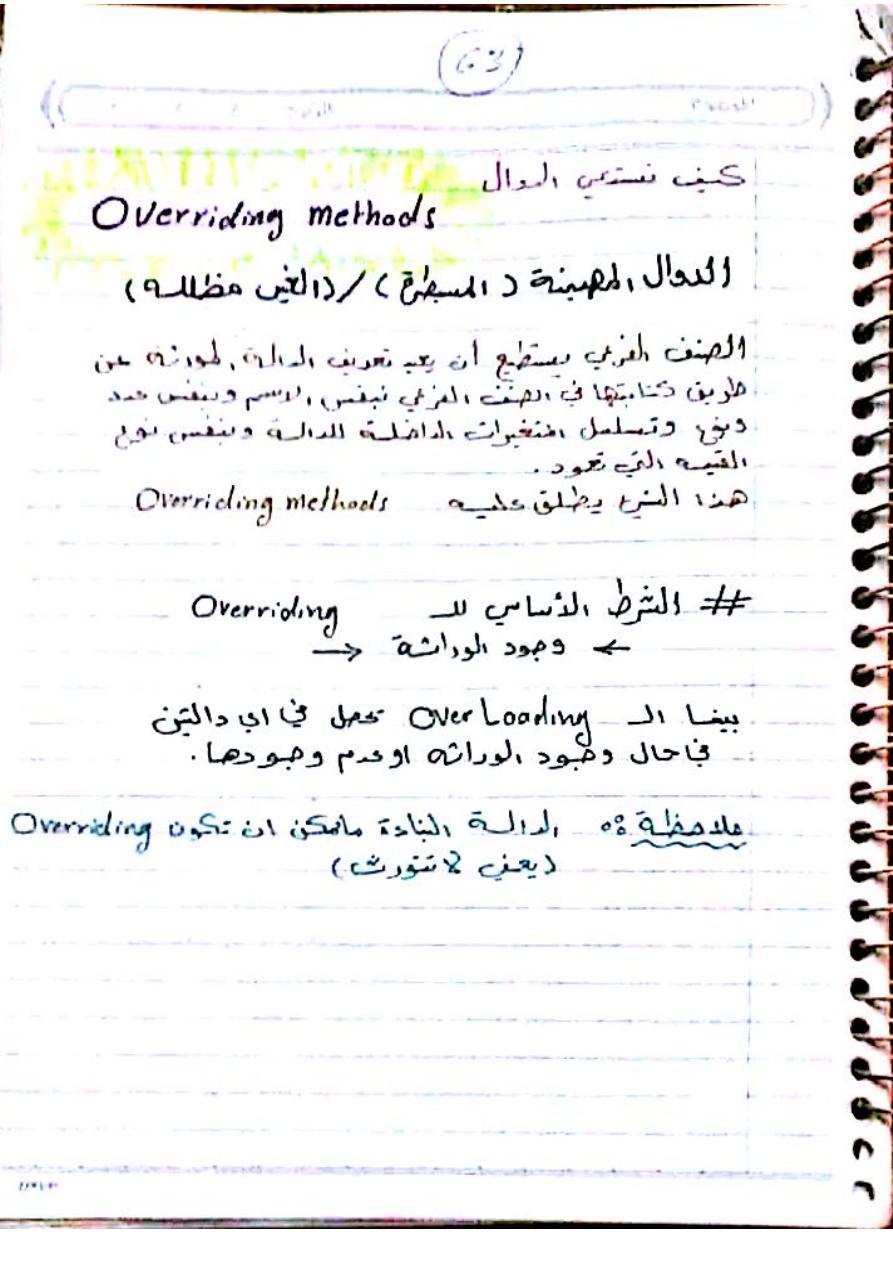 63
كيف نستدعي الدوال
Overriding methods
الدوال المهيمنة (المسيطرة) / (الغير مظللة)
الصنف الفرعي يستطيع أن يعيد تعريف الدالة الموراثه عن
طريق كتابتها في الصنف الفرعي بنفس الاسم وبنفس عدد
ونوع وتسلسل المتغيرات الداخلة للدالة وبنفس نوع
القيمه التي تعود.
هذا الشيء يطلق عليه Overriding methods
# الشرط الأساسي للـ Overriding
← وجود الوراثة →
بينما الـ OverLoading تحصل في اي دالتين
في حال وجود الوراثه او عدم وجودها.
ملاحظة: الدالة البناءة مامكن ان تكون Overriding
(يعني لا تتورث)